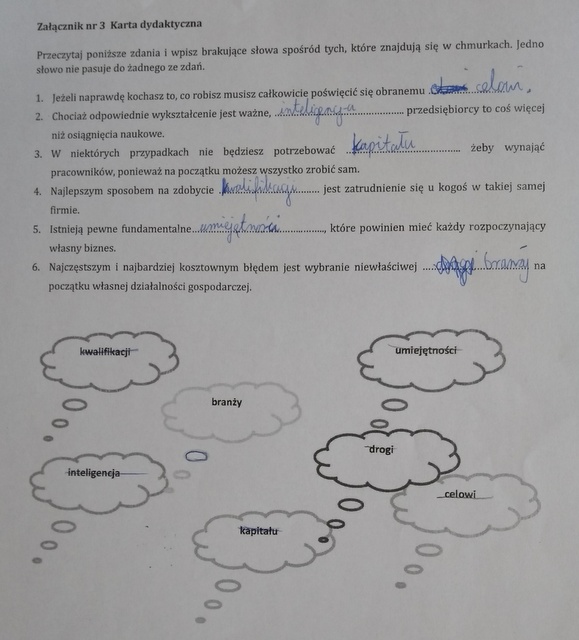 Załącznik nr 3 Karta dydaktyczna
Przeczytaj poniższe zdania i wpisz brakujące słowa spośród tych, które znajdują się w chmurkach. Jedno
słowo nie pasuje do żadnego ze zdań.
1. Jeżeli naprawdę kochasz to, co robisz musisz całkowicie poświęcić się obranemu celowi.
2. Chociaż odpowiednie wykształcenie jest ważne, ..inteligencja.............. przedsiębiorcy to coś więcej
niż osiągnięcia naukowe.
3. W niektórych przypadkach nie będziesz potrzebować ..kapitału............ żeby wynająć
pracowników, ponieważ na początku możesz wszystko zrobić sam.
4. Najlepszym sposobem na zdobycie .kwalifikacji....... jest zatrudnienie się u kogoś w takiej samej
firmie.
5. Istnieją pewne fundamentalne...umiejętności............., które powinien mieć każdy rozpoczynający
własny biznes.
6. Najczęstszym i najbardziej kosztownym błędem jest wybranie niewłaściwej ....drogi branży na
początku własnej działalności gospodarczej.
kwalifikacji
umiejętności
branży
drogi
inteligencja
celowi
kapitału